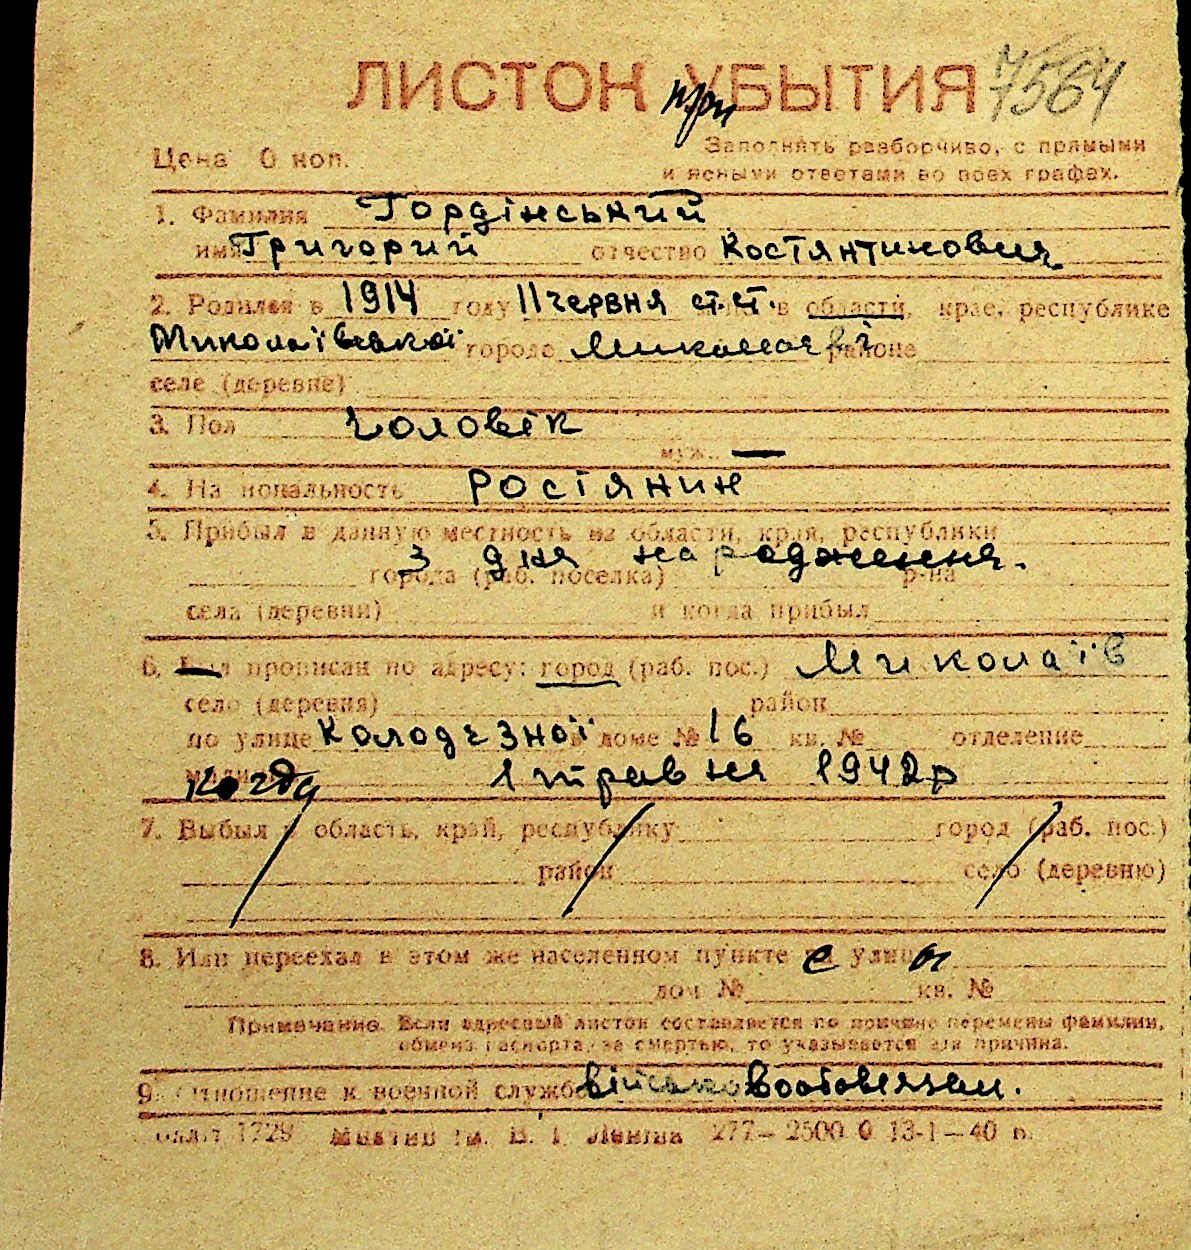 ЛИСТОК УБЫТИЯ
при
7564
Цена 6 коп.
Заполнять разборчиво, с прямыми
и ясными ответами во всех графах.
1. Фамилия Гордінський
имя Григорий отчество Костянтинович
2. Родился в 1914 году 11 червня ст.ст. в области, крае, республике
Миколаївської городе Миколаєві районе
селе (деревне)
3. Пол чоловік
муж.
4. Национальность Ростянин
5. Прибыл в данную местность из области, края, республики
з дня народження.
города (раб. поселка) р-на
села (деревни) и когда прибыл
6. Был прописан по адресу: город (раб. пос.) Миколаїв
село (деревня) район
по улице Колодезної в доме № 16 кв. № отделение
когда 1 травня 1942 р
7. Выбыл в область, край, республику город (раб. пос.)
район село (деревню)
8. Или переехал в этом же населенном пункте с улицы
дом № кв. №
Примечание. Если адресный листок составляется по причине перемены фамилии,
обмена паспорта, за смертью, то указывается эта причина.
9. Отношение к военной службе військовообовязан.
1729 им. В. І. Леніна 277—2500 0 13-1—40 п.